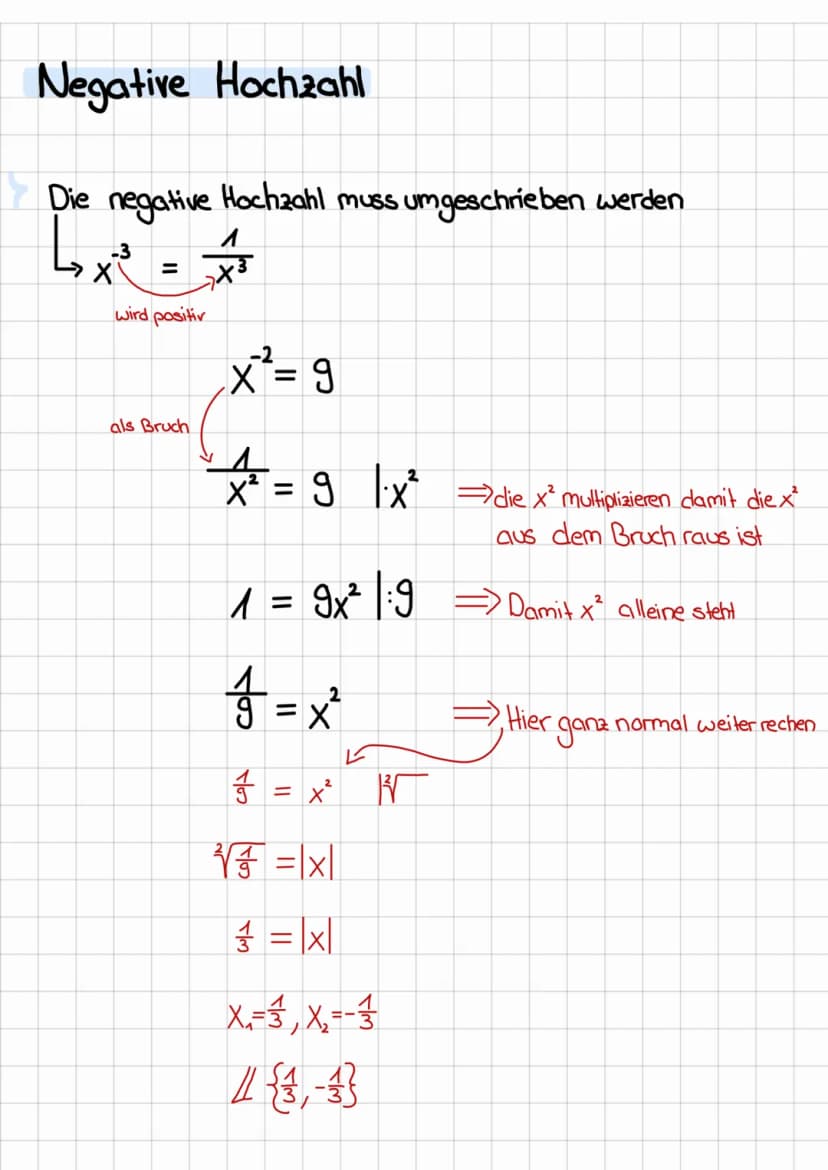 Negative Hochzahl
Die negative Hochzahl muss umgeschrieben werden
↳ x⁻³ = 1/x³
wird positiv
x⁻² = 9
als Bruch
1/x² = 9 |·x² ⇒ die x² multiplizieren damit die x²
aus dem Bruch raus ist
1 = 9x² |:9 ⇒ Damit x² alleine steht
1/9 = x² ⇒ Hier ganz normal weiter rechen
1/9 = x² |²√
²√(1/9) = |x|
1/3 = |x|
x₁ = 1/3, x₂ = -1/3
𝕃 {1/3, -1/3}